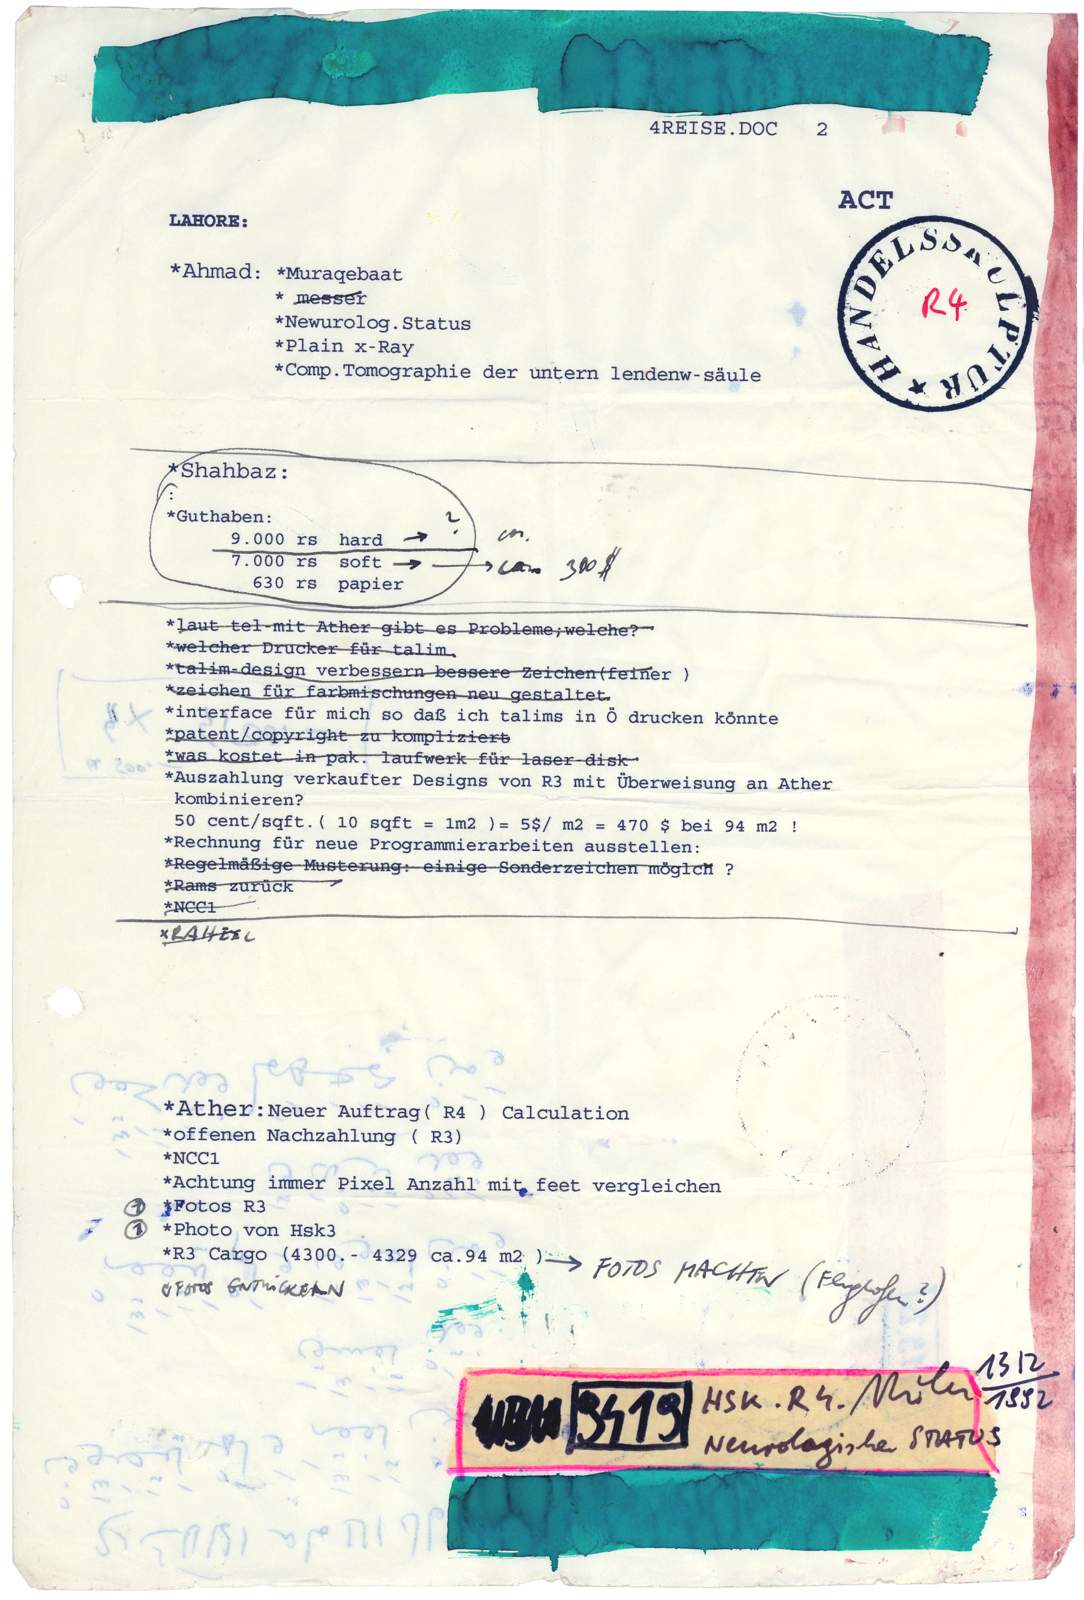 4REISE.DOC 2
ACT
LAHORE:
HANDELSSKULPTUR ★
R4
*Ahmad: *Muraqebaat
* messer
*Newurolog.Status
*Plain x-Ray
*Comp.Tomographie der untern lendenw-säule
*Shahbaz:
:
*Guthaben:
9.000 rs hard → ?
7.000 rs soft → → 300 $
630 rs papier
*laut tel-mit Ather gibt es Probleme;welche?
*welcher Drucker für talim.
*talim-design verbessern bessere Zeichen(feiner )
*zeichen für farbmischungen neu gestaltet.
*interface für mich so daß ich talims in Ö drucken könnte
*patent/copyright zu kompliziert
*was kostet in pak. laufwerk für laser-disk
*Auszahlung verkaufter Designs von R3 mit Überweisung an Ather
kombinieren?
50 cent/sqft.( 10 sqft = 1m2 )= 5$/ m2 = 470 $ bei 94 m2 !
*Rechnung für neue Programmierarbeiten ausstellen:
*Regelmäßige Musterung: einige Sonderzeichen möglcH ?
*Rams zurück
*NCC1
*RAHEEL
*Ather:Neuer Auftrag( R4 ) Calculation
*offenen Nachzahlung ( R3)
*NCC1
*Achtung immer Pixel Anzahl mit feet vergleichen
1 *Fotos R3
1 *Photo von Hsk3
*R3 Cargo (4300.- 4329 ca.94 m2 ) → FOTOS MACHEN (Flughafen?)
*FOTOS ENTWICKELN
9419 HSK. R4. 1312
1992
Neurologischer STATUS